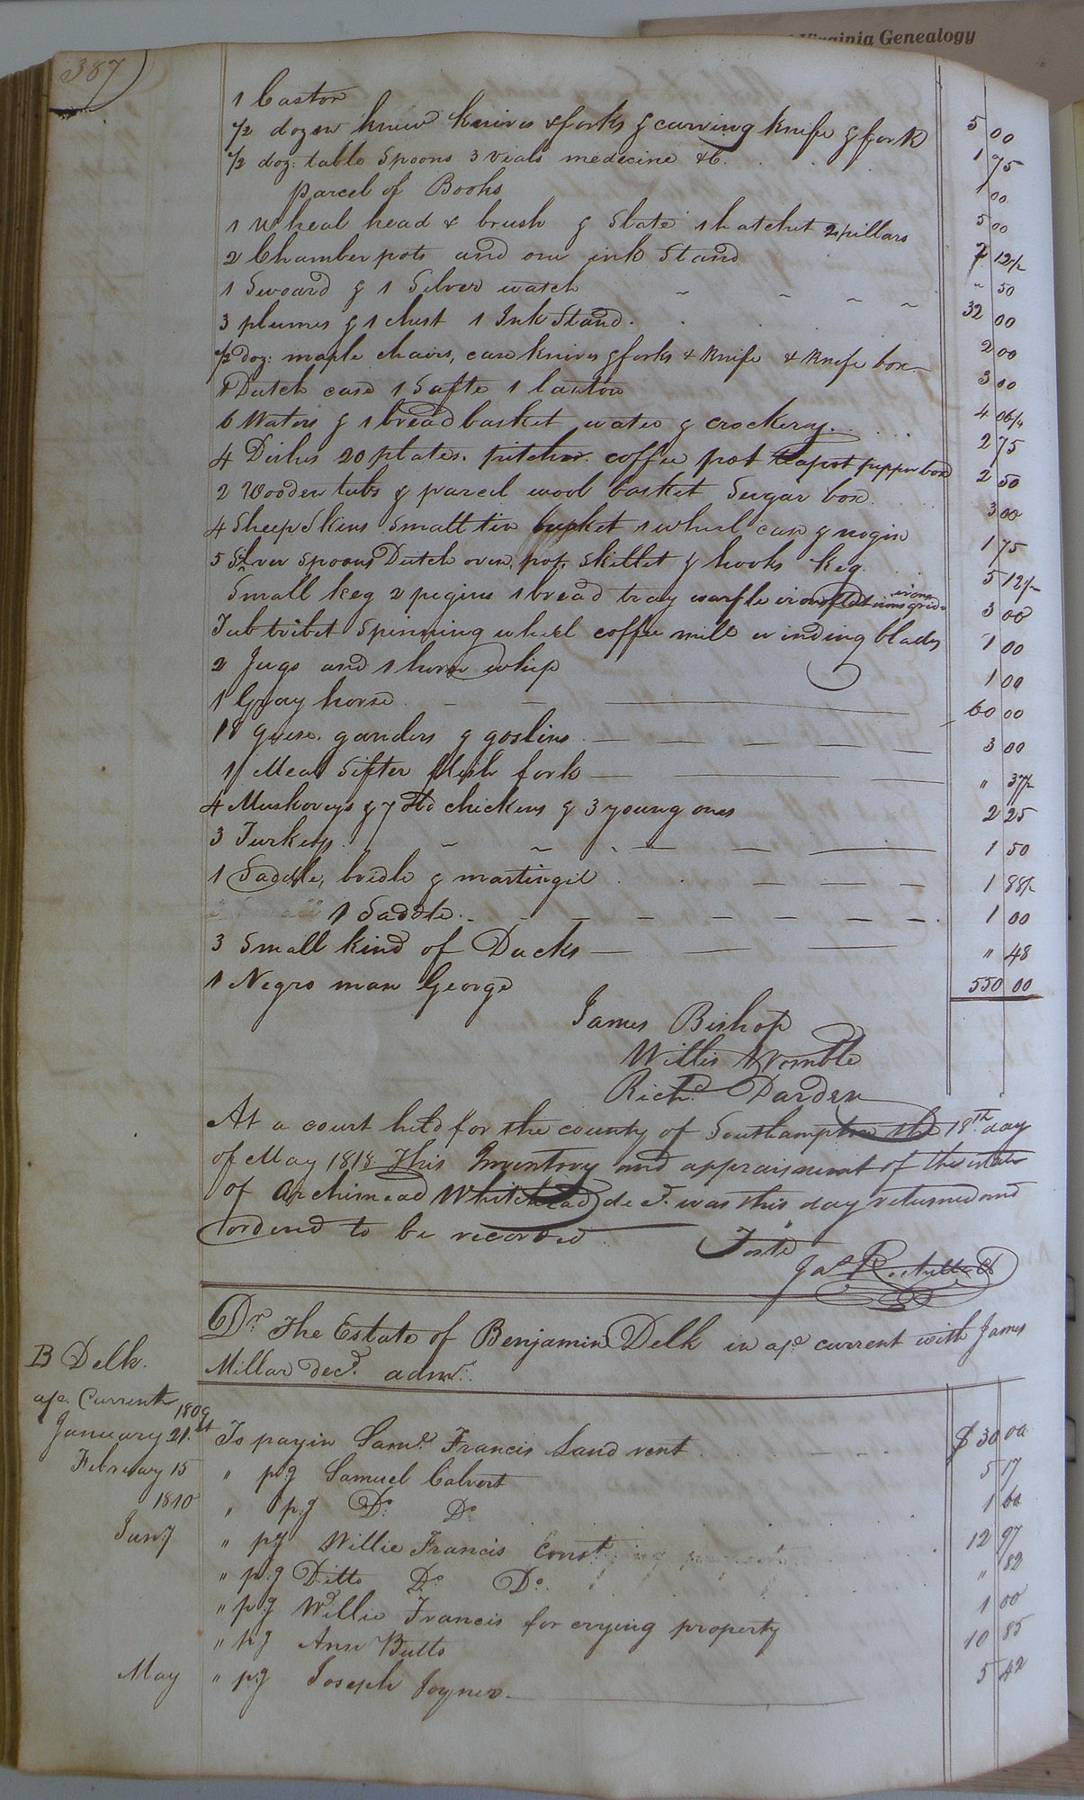 Virginia Genealogy
387
1 Castor 5 00
1/2 dozen knew knives & forks & carving knife & fork 1 75
1/2 doz: table Spoons 3 veals medicine &C. " 00
parcel of Books 5 00
1 Wheal head & brush & Slate 1 hatchet 2 pillars 7 12 1/2
2 Chamber pots and one ink Stand " 50
1 Sword & 1 Silver watch 32 00
3 plumes & 1 chest 1 Ink Stand. 2 00
1/2 doz: maple chairs, case knives & forks & knife & knife box 3 00
1 Dutch case 1 Safte 1 lanton 4 06 1/4
6 Waters & 1 bread basket water & crockery. 2 75
4 Dishes 20 plates. pitcher. coffee pot teapot pepper box 2 50
2 Wooden tubs & parcel wool basket Sugar box 3 00
4 Sheep Skins Small tin bucket 1 wheel case & nogin 1 75
5 Silver Spoons Dutch oven, pot, Skillet & hooks keg. 5 12 1/2
Small keg 2 pigins 1 bread tray warfle irons flat irons grid irons 3 00
Tub tribet Spinning wheel coffee mill winding blades 1 00
2 Jugs and 1 horse whip 1 00
1 Gray horse 60 00
18 Geese. ganders & goslins 3 00
1 Meal Sifter flesh fork " 37 1/2
4 Muskoveys & 7 old chickens & 3 young ones 2 25
3 Turkeys 1 50
1 Saddle, bridle & martingil 1 88 1/2
1 Saddle. 1 00
3 Small kind of Ducks " 48
1 Negro man George 550 00
James Bishop
Willis Womble
Richd. Darden
At a court held for the county of Southampton the 18th day
of May 1818 This Inventory and appraisment of the estate
of Archimead Whitehead decd. was this day returned and
ordered to be recorded
Teste
Jas Rochelle C
Dr The Estate of Benjamin Delk in a/c current with James
Millar decd. admr.
B Delk.
a/c. Current 1809
January 21st To payin Saml. Francis Land rent $ 30 00
February 15 " pg Samuel Calvert 5 17
1810 " pg Do. Do 1 60
Jany " pg Willie Francis Const 12 97
" pg Ditto Do Do. " 82
" pg Willie Francis for crying property 1 00
" pg Ann Butts 10 85
May " pg Joseph Joyner 5 42